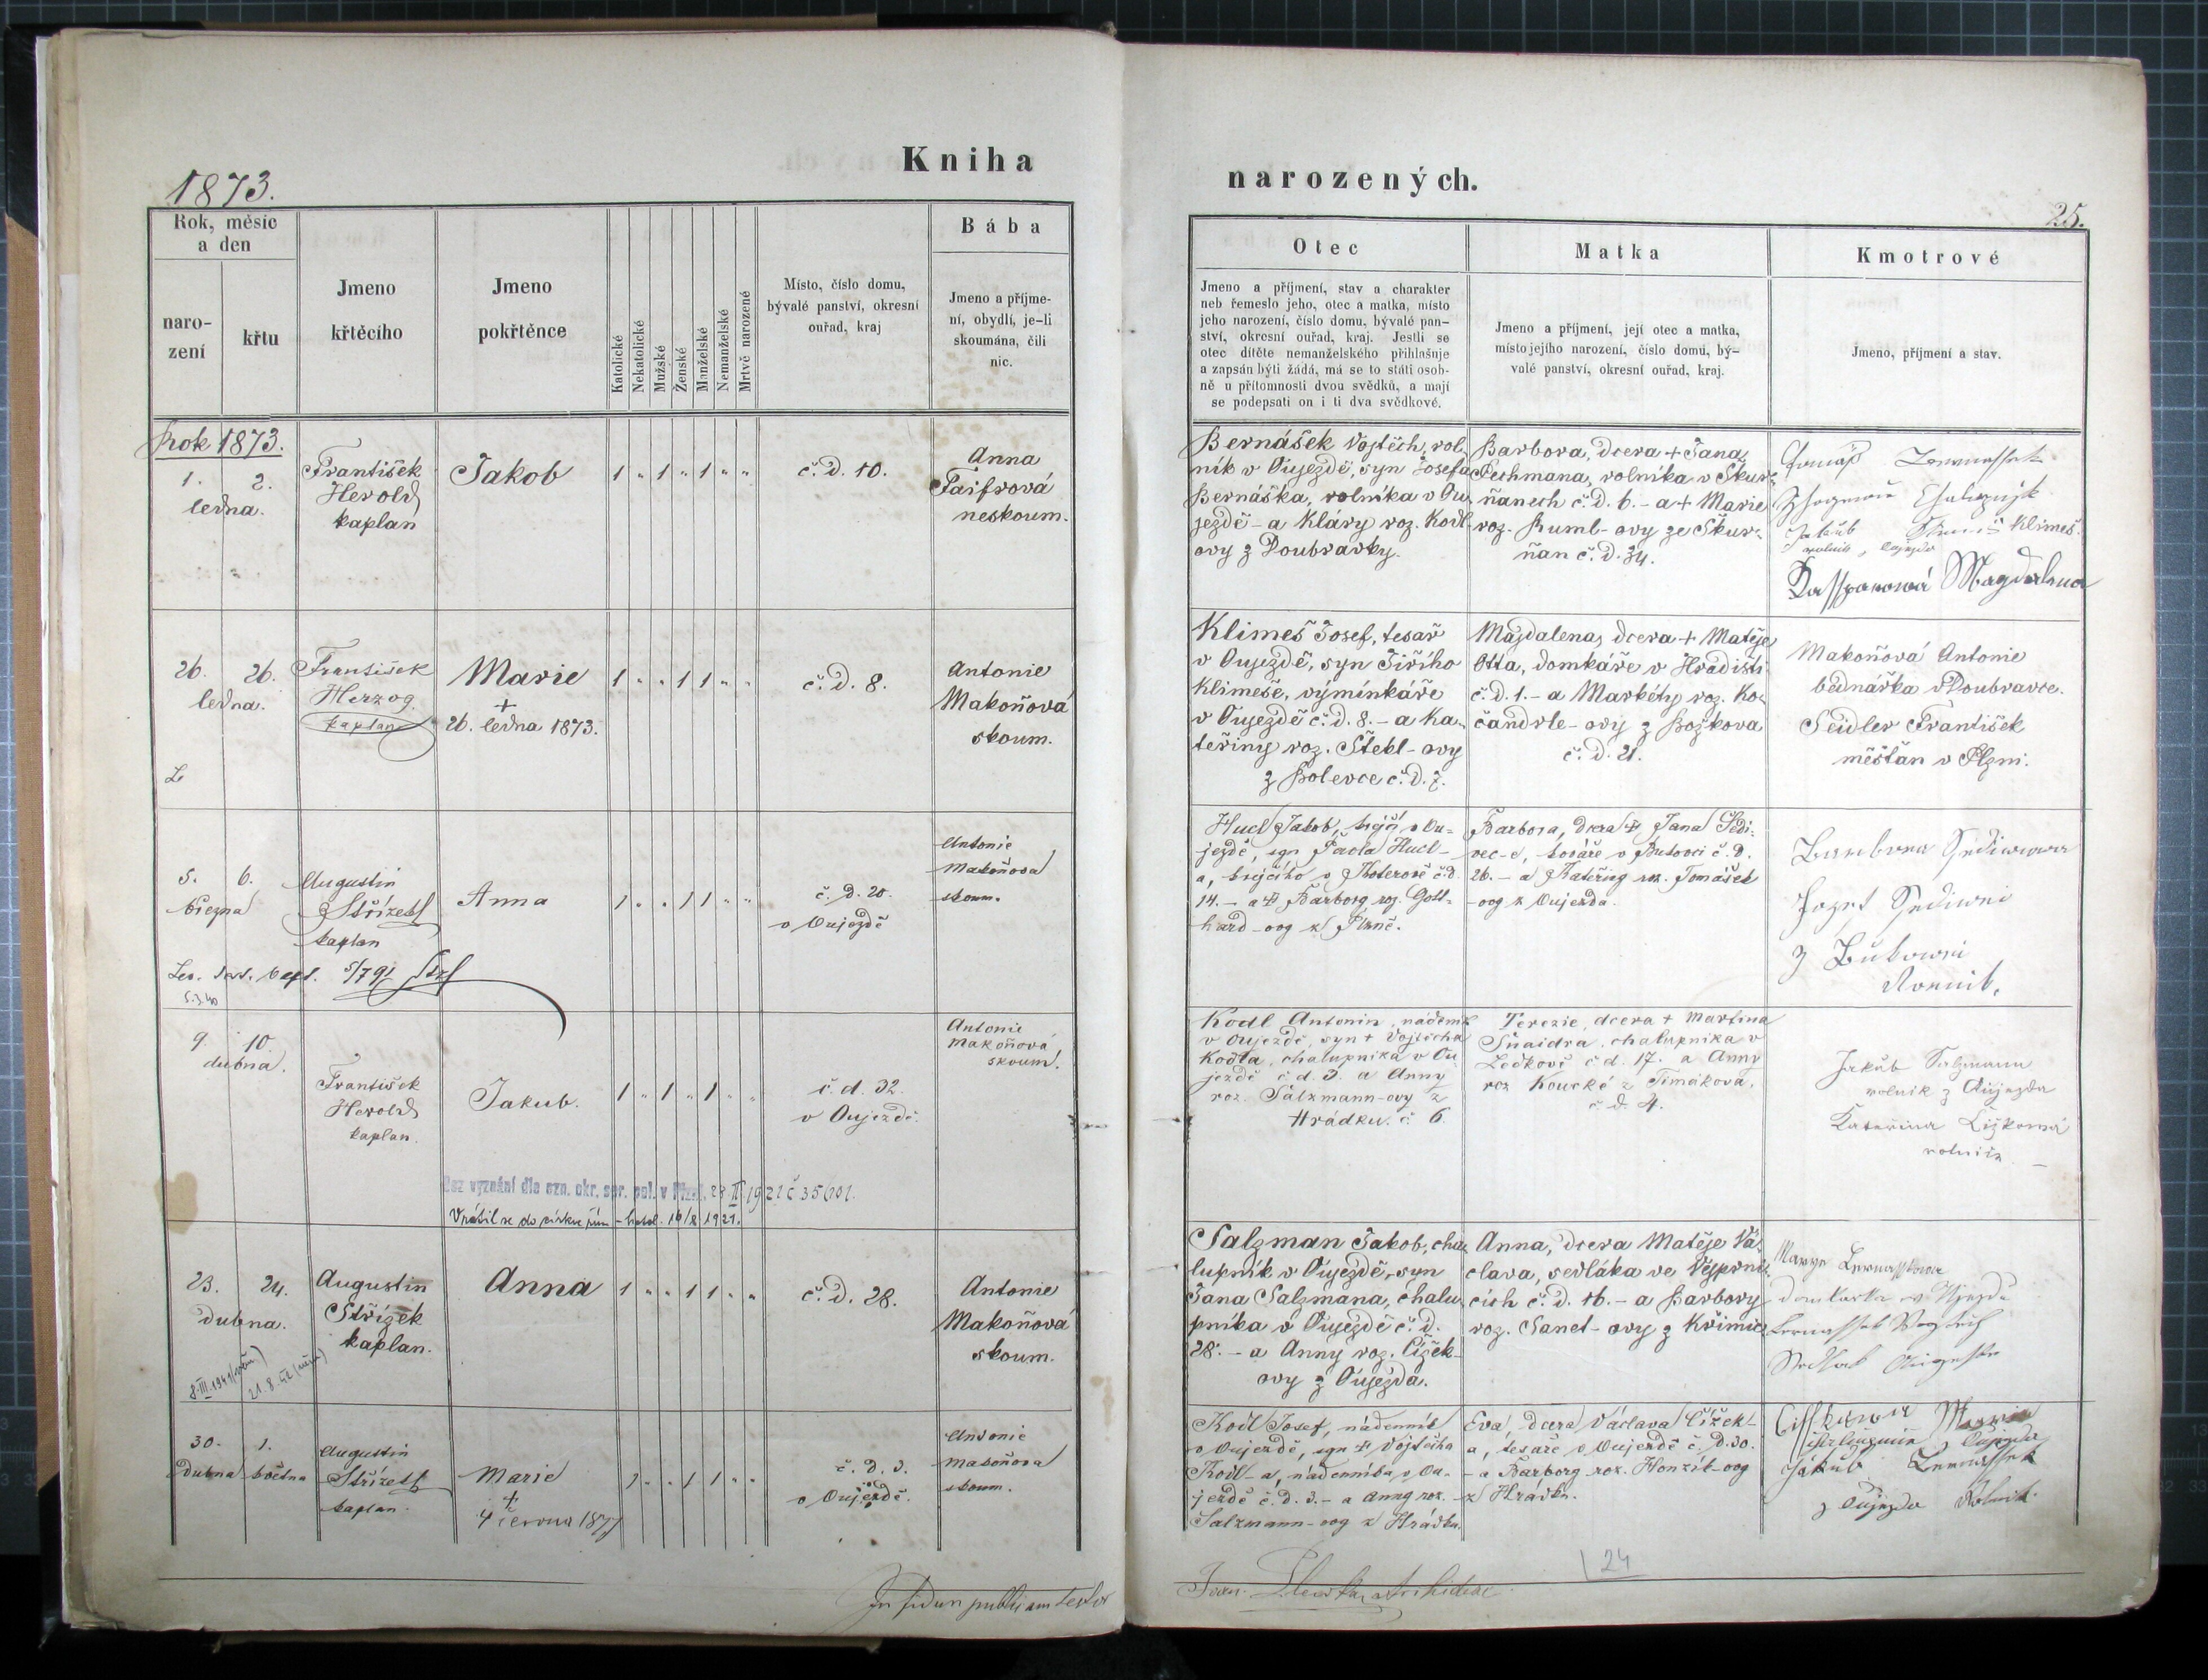 Kniha
1873.
Rok, měsíc
a den
naro-
zení
křtu
Jmeno
křtěcího
Jmeno
pokřtěnce
Katolické
Nekatolické
Mužské
Ženské
Manželské
Nemanželské
Mrtvě narozené
Místo, číslo domu,
bývalé panství, okresní
ouřad, kraj
Bába
Jmeno a příjme-
ní, obydlí, je-li
skoumána, čili
nic.
Rok 1873.
1. 2.
ledna.
František
Herold
kaplan
Jakob
1 " 1 " 1 " "
č. d. 10.
Anna
Faifrová
neskoum.
26. 26.
ledna.
František
Herzog
kaplan
Marie
+
26. ledna 1873.
1 " " 1 1 " "
č. d. 8.
Antonie
Makoňová
skoum.
5. 6.
března
Augustin
Střízek
kaplan
Anna
1 " " 1 1 " "
č. d. 20.
v Oujezdě
Antonie
Makoňová
skoum.
5/791
9. 10.
dubna.
František
Herold
kaplan.
Jakub.
1 " 1 " 1 " "
č. d. 32.
v Oujezdě.
Antonie
Makoňová
skoum.
Bez vyznání dle ozn. okr. spr. pol. v Plzni 28 II 1921 č 35601.
Vrátil se do církve řím-katol. 16/8 1921.
23. 24.
dubna.
Augustin
Střízek
kaplan.
Anna
1 " " 1 1 " "
č. d. 28.
Antonie
Makoňová
skoum.
8. III. 1941
21. 8. 42
30. 1.
Dubna května
Augustin
Střízek
kaplan.
Marie
+
4 června 1877
1 " " 1 1 " "
č. d. 3.
v Oujezdě.
Antonie
Makoňová
skoum.
In fidem publicam testor
narozených.
25.
Otec
Jmeno a příjmení, stav a charakter
neb řemeslo jeho, otec a matka, místo
jeho narození, číslo domu, bývalé pan-
ství, okresní ouřad, kraj. Jestli se
otec dítěte nemanželského přihlašuje
a zapsán býti žádá, má se to státi osob-
ně u přítomnosti dvou svědků, a mají
se podepsati on i ti dva svědkové.
Matka
Jmeno a příjmení, její otec a matka,
místo jejího narození, číslo domu, bý-
valé panství, okresní ouřad, kraj.
Kmotrové
Jmeno, příjmení a stav.
Bernášek Vojtěch, rol-
ník v Oujezdě, syn Josefa
Bernáška, rolníka v Ou-
jezdě - a Kláry roz. Kodl-
ovy z Doubravky.
Barbora, dcera + Jana
Pechmana, rolníka v Skur-
ňanech č. d. 6. - a + Marie
roz. Ruml-ovy ze Skur-
ňan č. d. 34.
Jakub Klimeš
rolník, Oujezda
Kassparowá Magdalena
Klimeš Josef, tesař
v Oujezdě, syn Jiřího
Klimeše, výminkáře
v Oujezdě č. d. 8. - a Ka-
teřiny roz. Štekl-ovy
z Bolevce č. d. 7.
Magdalena, dcera + Matěje
Otta, domkáře v Hradišti
č. d. 1. - a Markéty roz. Ko-
čandrle-ovy z Božkova
č. d. 21.
Makoňová Antonie
bednářka v Doubravce.
Seidler František
měšťan v Plzni.
Hucl Jakob, krejčí v Ou-
jezdě, syn Pavla Hucl-
a, krejčího v Koterově č. d.
14. - a + Barbory roz. Gott-
hard-ovy z Plzně.
Barbora, dcera + Jana Šedi-
vec-e, kováře v Bukovci č. d.
26. - a Kateřiny roz. Tomášek
-ovy z Oujezda.
Kodl Antonín, nádeník
v Oujezdě, syn + Vojtěcha
Kodla, chalupníka v Ou
jezdě č d. 3. a Anny
roz. Salzmann-ovy z
Hrádku. č. 6.
Terezie, dcera + Martina
Šnaidra, chalupníka v
Ledkově č d. 17. a Anny
roz Koucké z Timákova.
č. d. 4.
Jakub Salzmann
rolník z Oujezda
Kateřina Čížková
Salzman Jakob, cha-
lupník v Oujezdě, syn
Jana Salzmana, chalu-
pníka v Oujezdě č. d.
28. - a Anny roz. Čížek-
ovy z Oujezda.
Anna, dcera Matěje Vá-
clava, sedláka ve Vejprni-
cích č. d. 16. - a Barbory
roz. Sanet-ovy z Křimic
Kodl Josef, nádenník
v Oujezdě, syn + Vojtěcha
Kodl-a, nádenníka v Ou-
jezdě č. d. 3. - a Anny roz.
Salzmann-ovy z Hrádku.
Eva, dcera Václava Čížek-
a, tesaře v Oujezdě č. d. 30.
- a Barbory roz. Honzík-ovy
z Hrádku.
z Oujezda Rolník
24